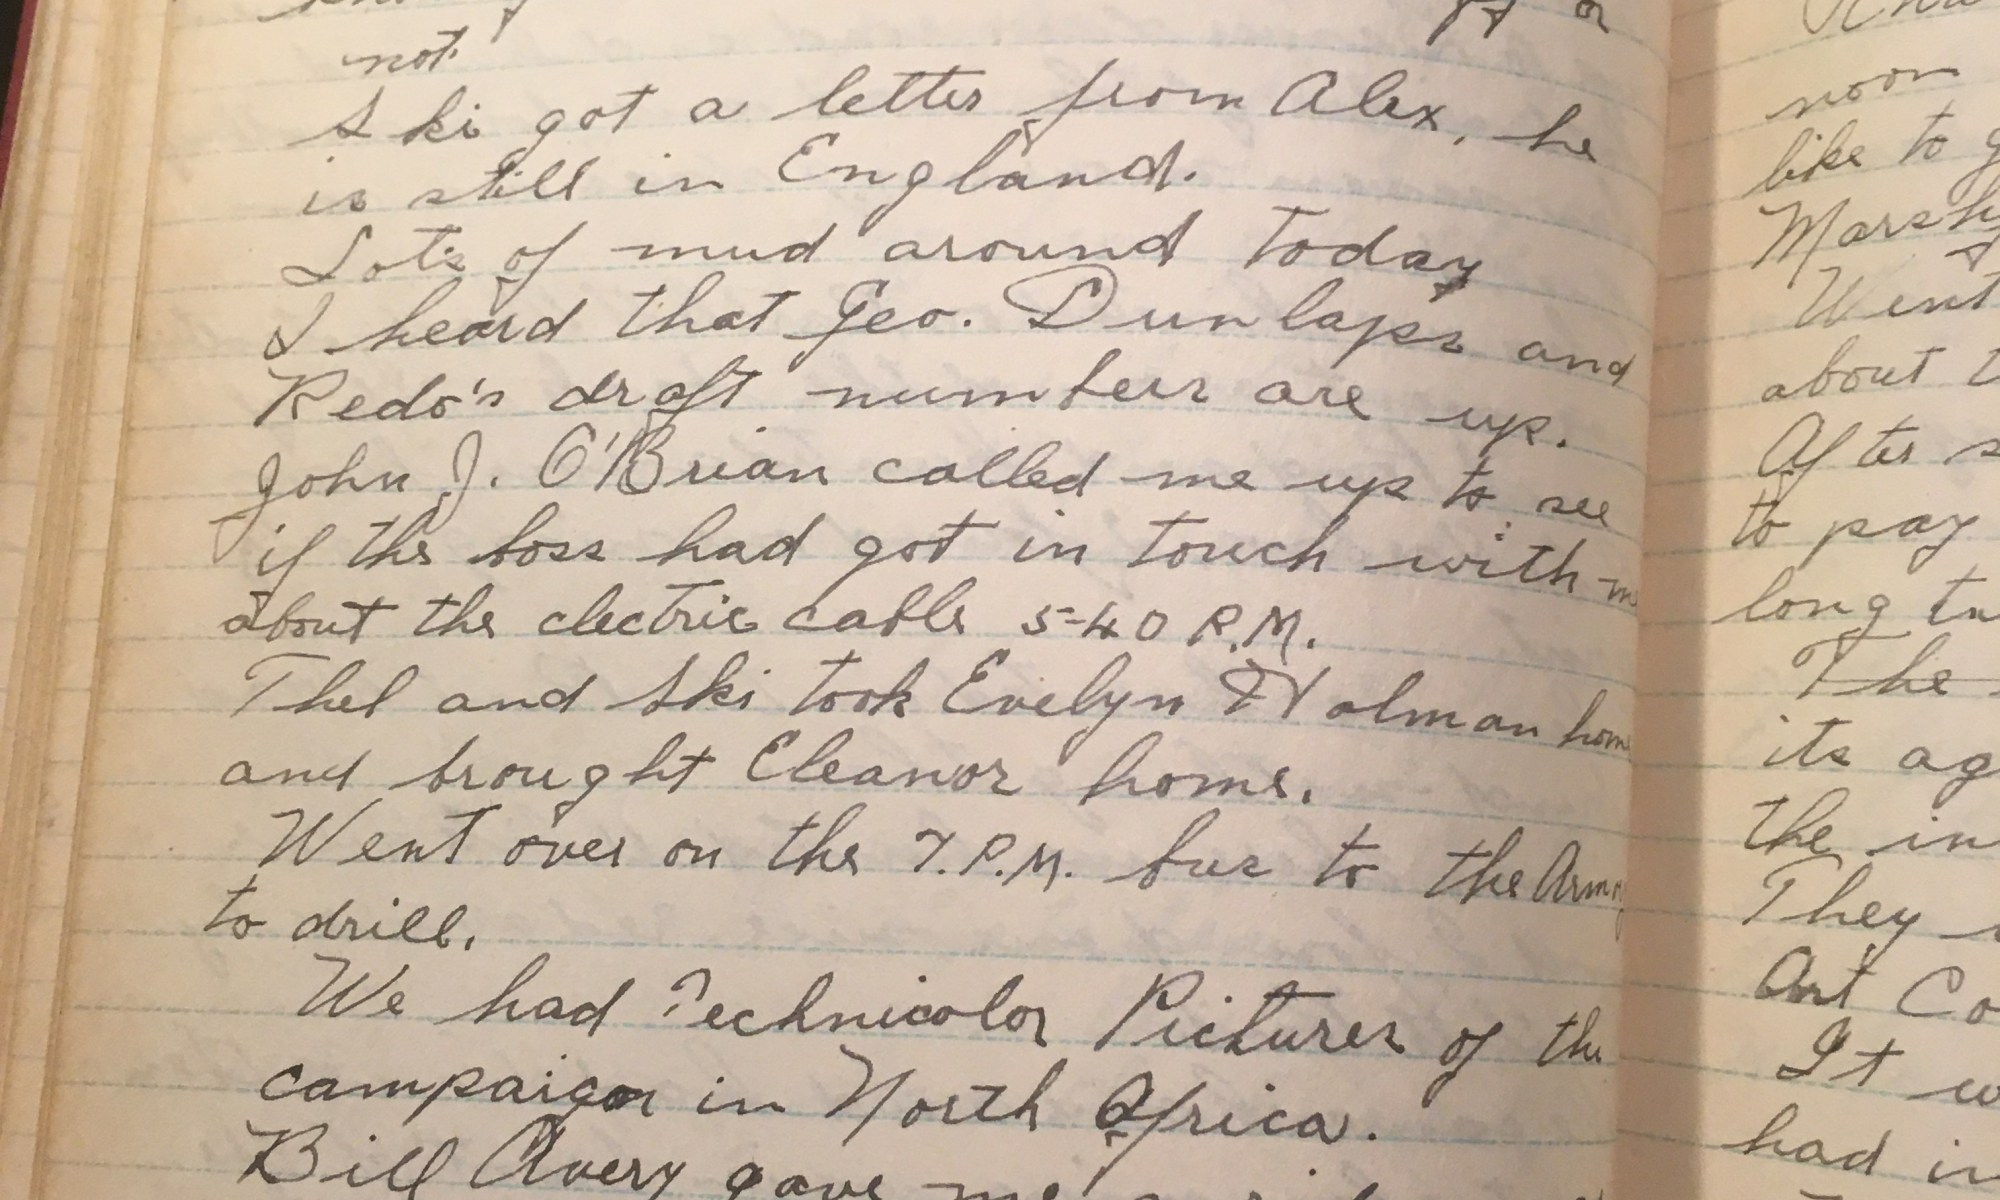 or
not.
Ski got a letter from Alex, he
is still in England.
Lots of mud around today
I heard that Geo. Dunlaps and
Redo's draft numbers are up.
John J. O'Brian called me up to see
if the boss had got in touch with m
about the electric cable 5-40 P.M.
Thel and Ski took Evelyn Holman home
and brought Eleanor home.
Went over on the 7.P.M. bus to the Armory
to drill.
We had Technicolor Pictures of the
campaign in North Africa.
Bill Avery gave me a
noon
like to g
Marsh
Went
about t
After s
to pay
long tu
The
its ag
the in
They
Art Co
It w
had in